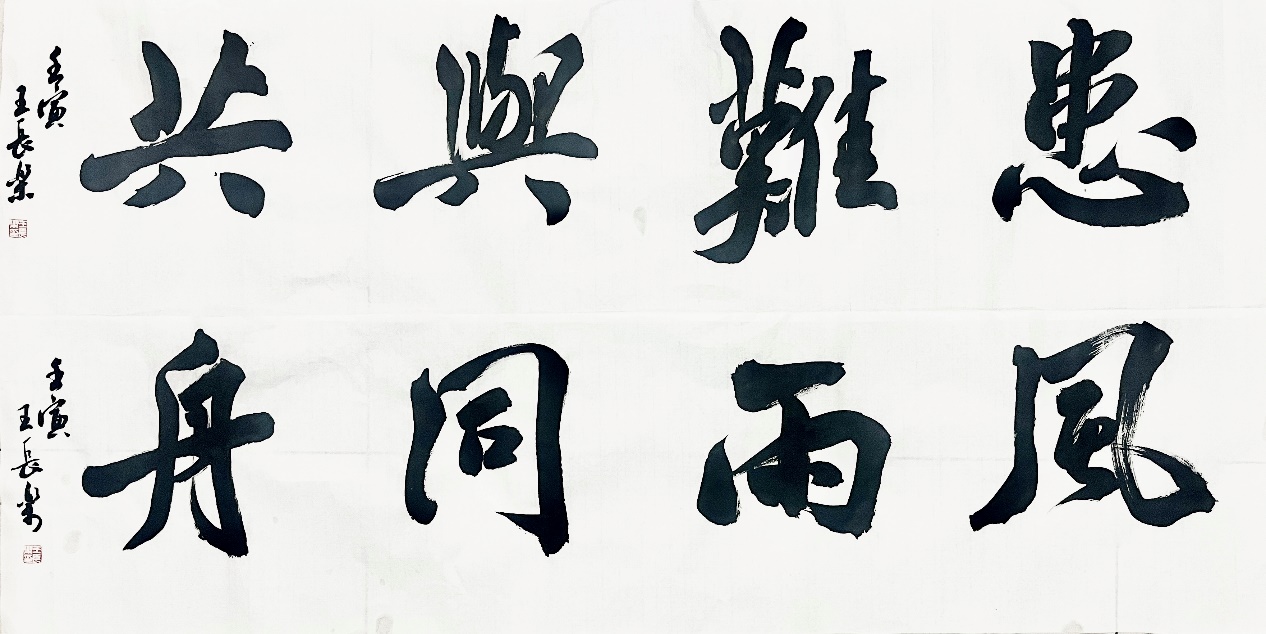 患難與共
壬寅
王長樂
風雨同舟
壬寅
王長樂